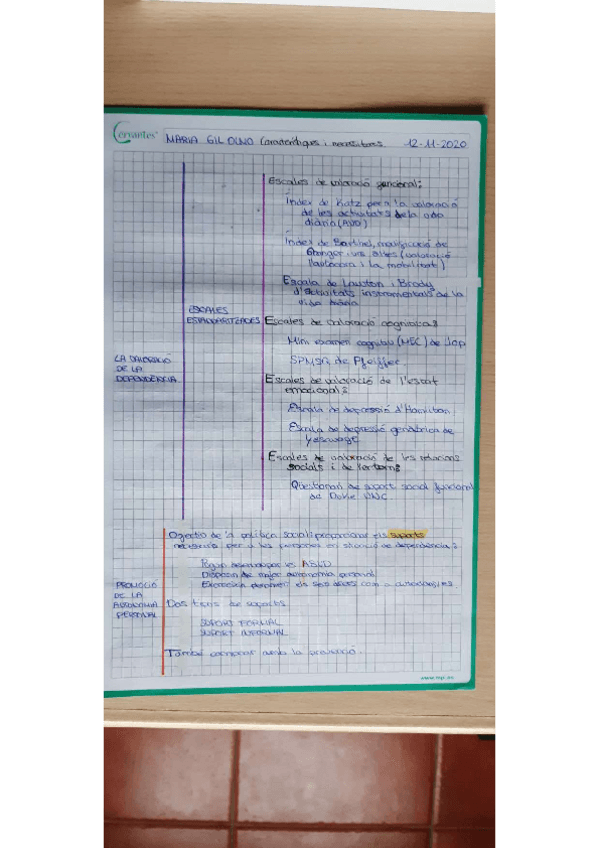 Cervantes
MARIA GIL OLMO Característiques i necessitats 12-11-2020
Escales de valoració funcional:
Índex de Katz per a la valoració
de les activitats de la vida
diària (AVD)
Índex de Barthel, modificació de
Granger i uns altres (valoració
l'autocura i la mobilitat)
Escala de Lawton i Brody
d'activitats instrumentals de la
vida diària
ESCALES
ESTANDARITZADES
Escales de valoració cognitiva:
Mini examen cognitiu (MEC) de Lop
SPMSQ de Pfeiffer
LA VALORACIÓ
DE LA
DEPENDÈNCIA
Escales de valoració de l'estat
emocional:
Escala de depressión d'Hamilton
Escala de depressió geriàtrica de
Yesavage
Escales de valoració de les relacions
socials i de l'entorn:
Questionari de suport social funcional
de Duke UNC
Objectiu de la política social: proporcionar els suports
necessaris per a les persones en situació de dependència:
Puguin desenvolupar les ABVD
Disposin de major autonomia personal
Exerceixin plenament els seus drets com a ciutadans/es
PROMOCIÓ
DE LA
AUTONOMIA
PERSONAL
Dos tipus de suports
SUPORT FORMAL
SUPORT INFORMAL
També comptar amb la prevenció.